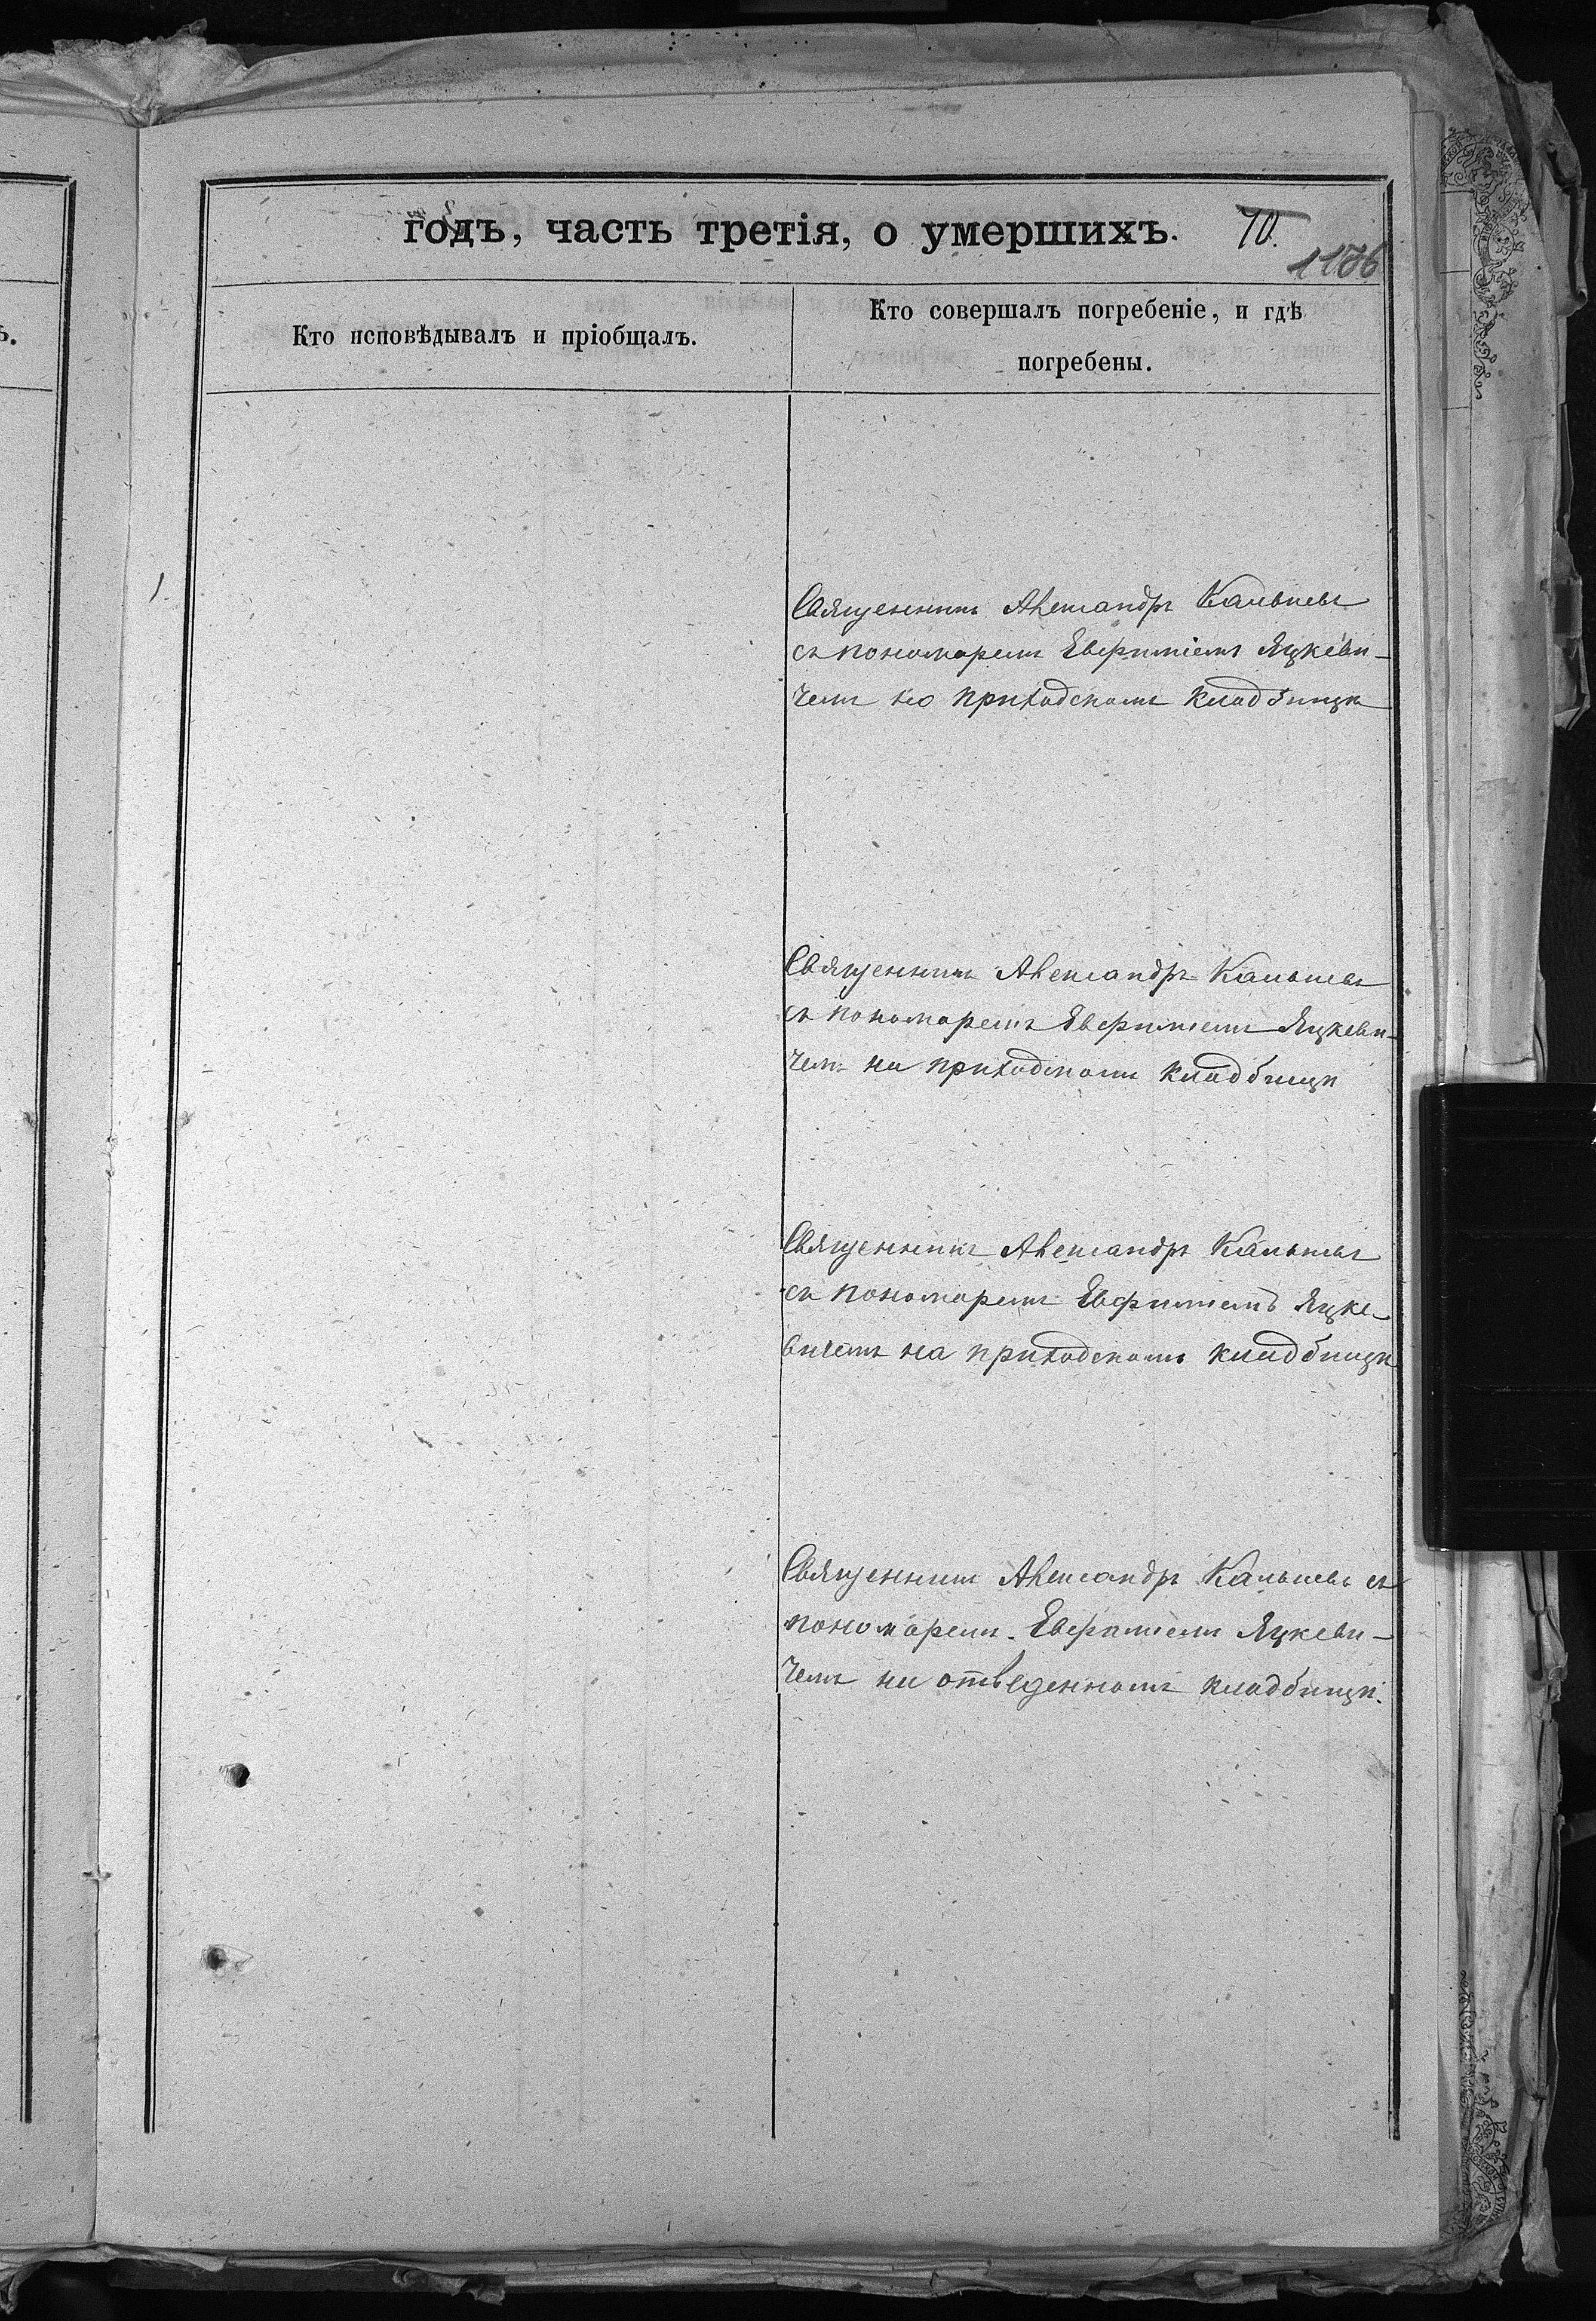 годъ, часть третія, о умершихъ. 70.
1176
Кто исповѣдывалъ и пріобщалъ.
Кто совершалъ погребеніе, и гдѣ
погребены.
Священникъ Александръ Кальневъ
съ пономаремъ Евфиміемъ Яцкеви-
чемъ на приходскомъ кладбищѣ
Священникъ Александръ Кальневъ
съ пономаремъ Евфиміемъ Яцкеви-
чемъ на приходскомъ кладбищѣ
Священникъ Александръ Кальневъ
съ пономаремъ Евфиміемъ Яцке-
вичемъ на приходскомъ кладбищѣ
Священникъ Александръ Кальневъ съ
пономаремъ Евфиміемъ Яцкеви-
чемъ на отведенномъ кладбищѣ.